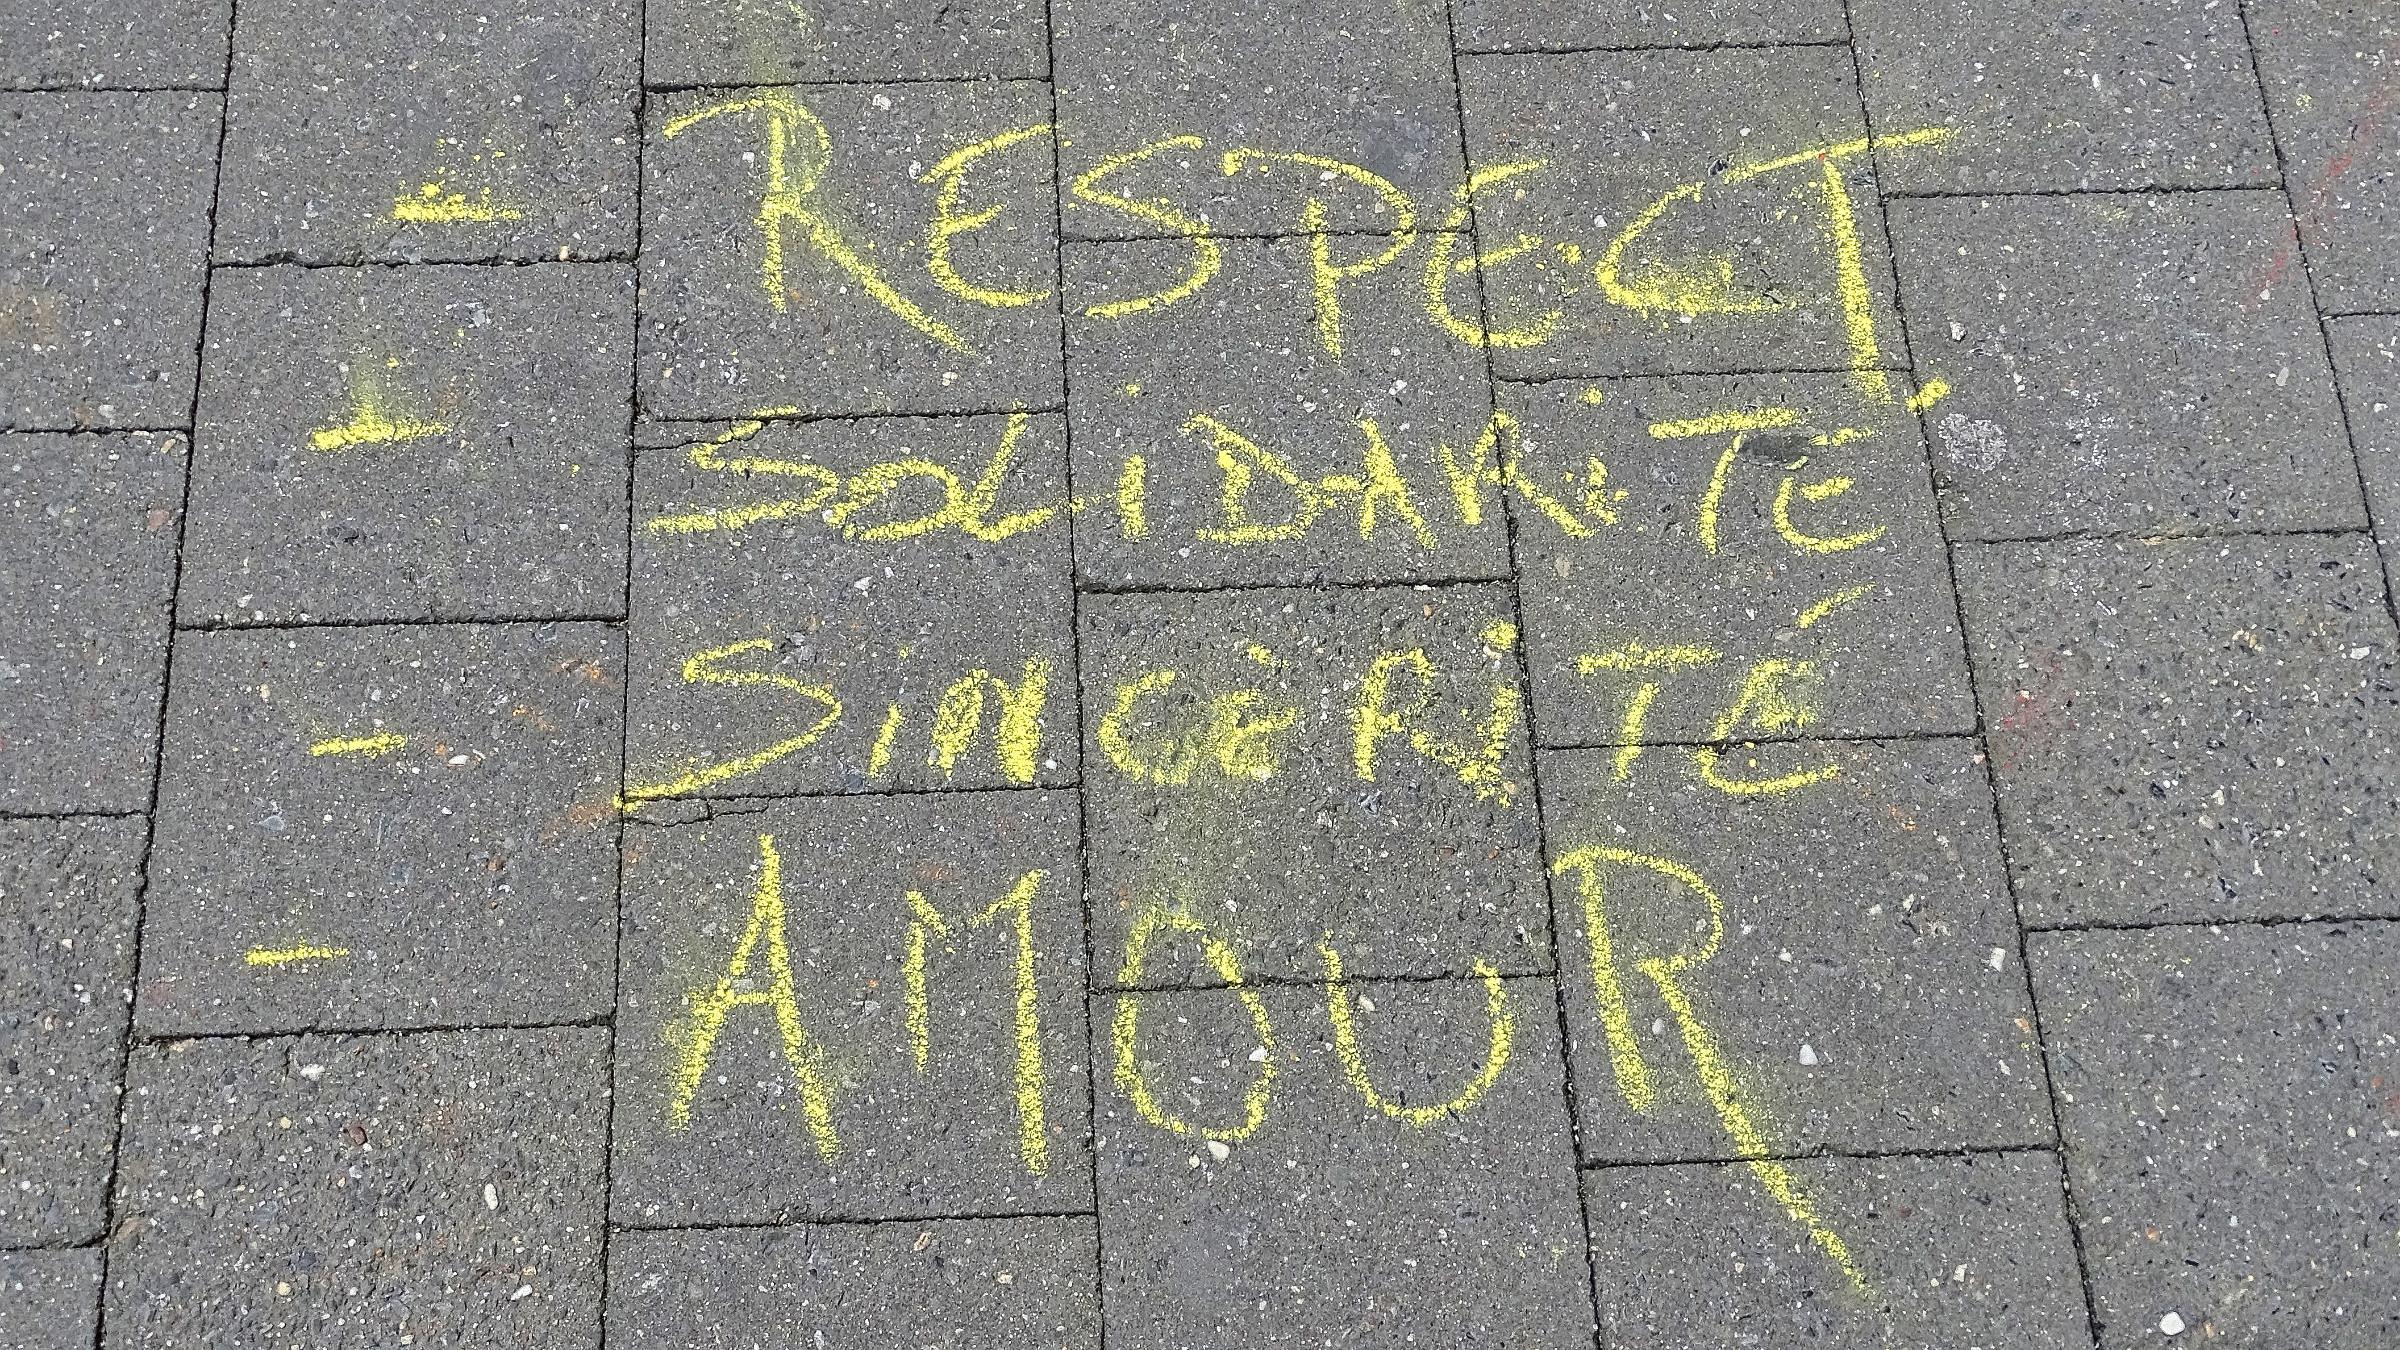 - RESPECT.
- SOLiDARiTÉ
- SiNCÈRiTÉ
- AMOUR